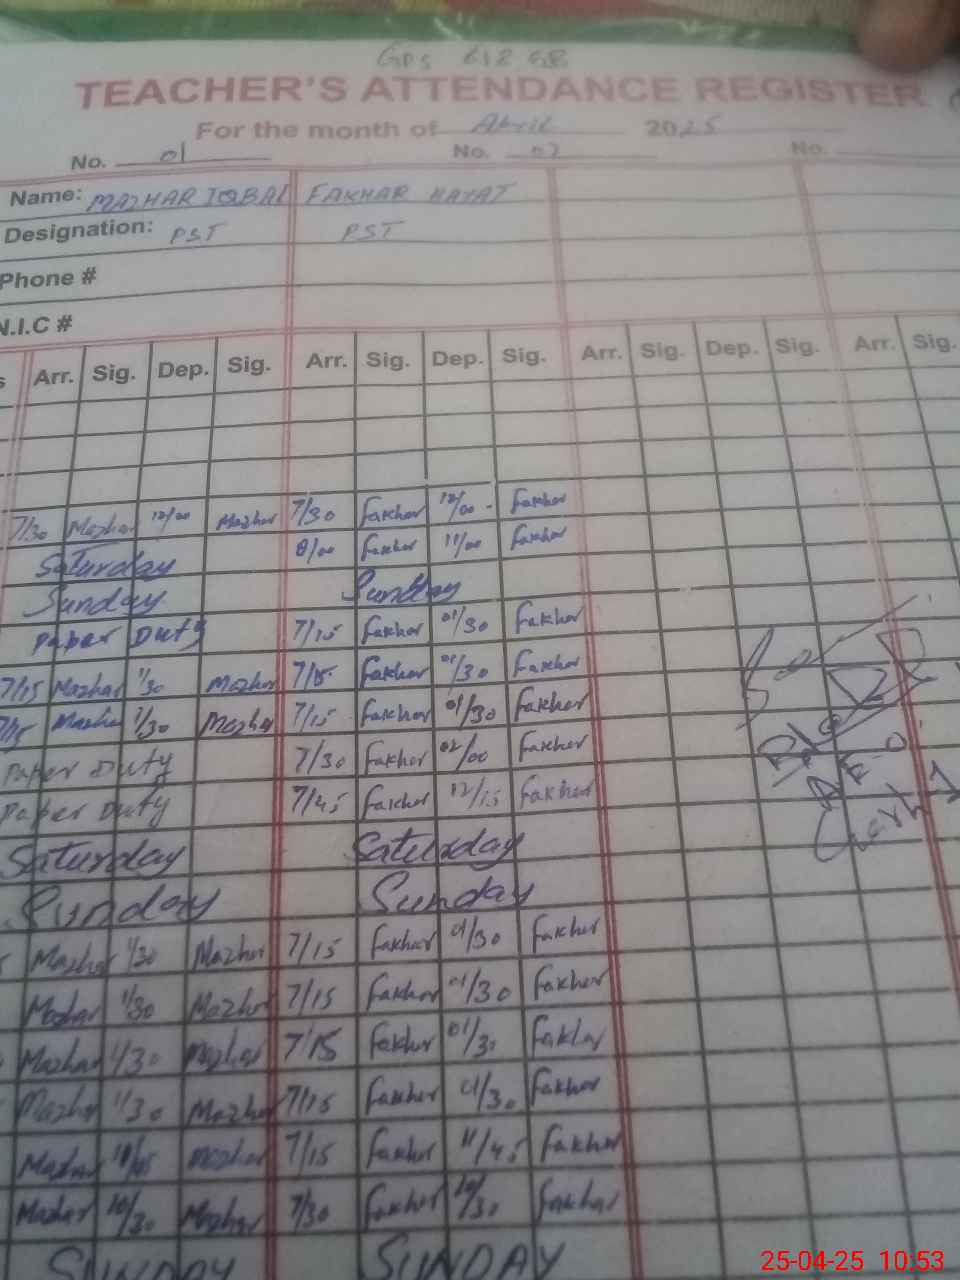 GPS 612 GB
TEACHER'S ATTENDANCE REGISTER
For the month of April 2025
No. 01 No. 02 No.
Name: MAZHAR IQBAL FAKHAR HAYAT
Designation: PST PST
Phone #
N.I.C #
s Arr. Sig. Dep. Sig. Arr. Sig. Dep. Sig. Arr. Sig. Dep. Sig. Arr. Sig.
7/30 Mazhar 12/00 Mazhar 7/30 Fakhar 12/00 Fakhar
Saturday 8/00 Fakhar 11/00 Fakhar
Sunday Sunday
Paper Duty 7/15 Fakhar 01/30 Fakhar
7/15 Mazhar 1/30 Mazhar 7/15 Fakhar 01/30 Fakhar
7/15 Mazhar 1/30 Mazhar 7/15 Fakhar 01/30 Fakhar
Paper Duty 7/30 Fakhar 02/00 Fakhar
Paper Duty 7/45 Fakhar 12/15 Fakhar
Saturday Saturday
Sunday Sunday
Mazhar 1/30 Mazhar 7/15 Fakhar 01/30 Fakhar
Mazhar 1/30 Mazhar 7/15 Fakhar 01/30 Fakhar
Mazhar 1/30 Mazhar 7/15 Fakhar 01/30 Fakhar
Mazhar 1/30 Mazhar 7/15 Fakhar 01/30 Fakhar
Mazhar 11/45 Mazhar 7/15 Fakhar 11/45 Fakhar
Mazhar 10/30 Mazhar 7/30 Fakhar 10/30 Fakhar
SUNDAY SUNDAY
25-04-25 10:53